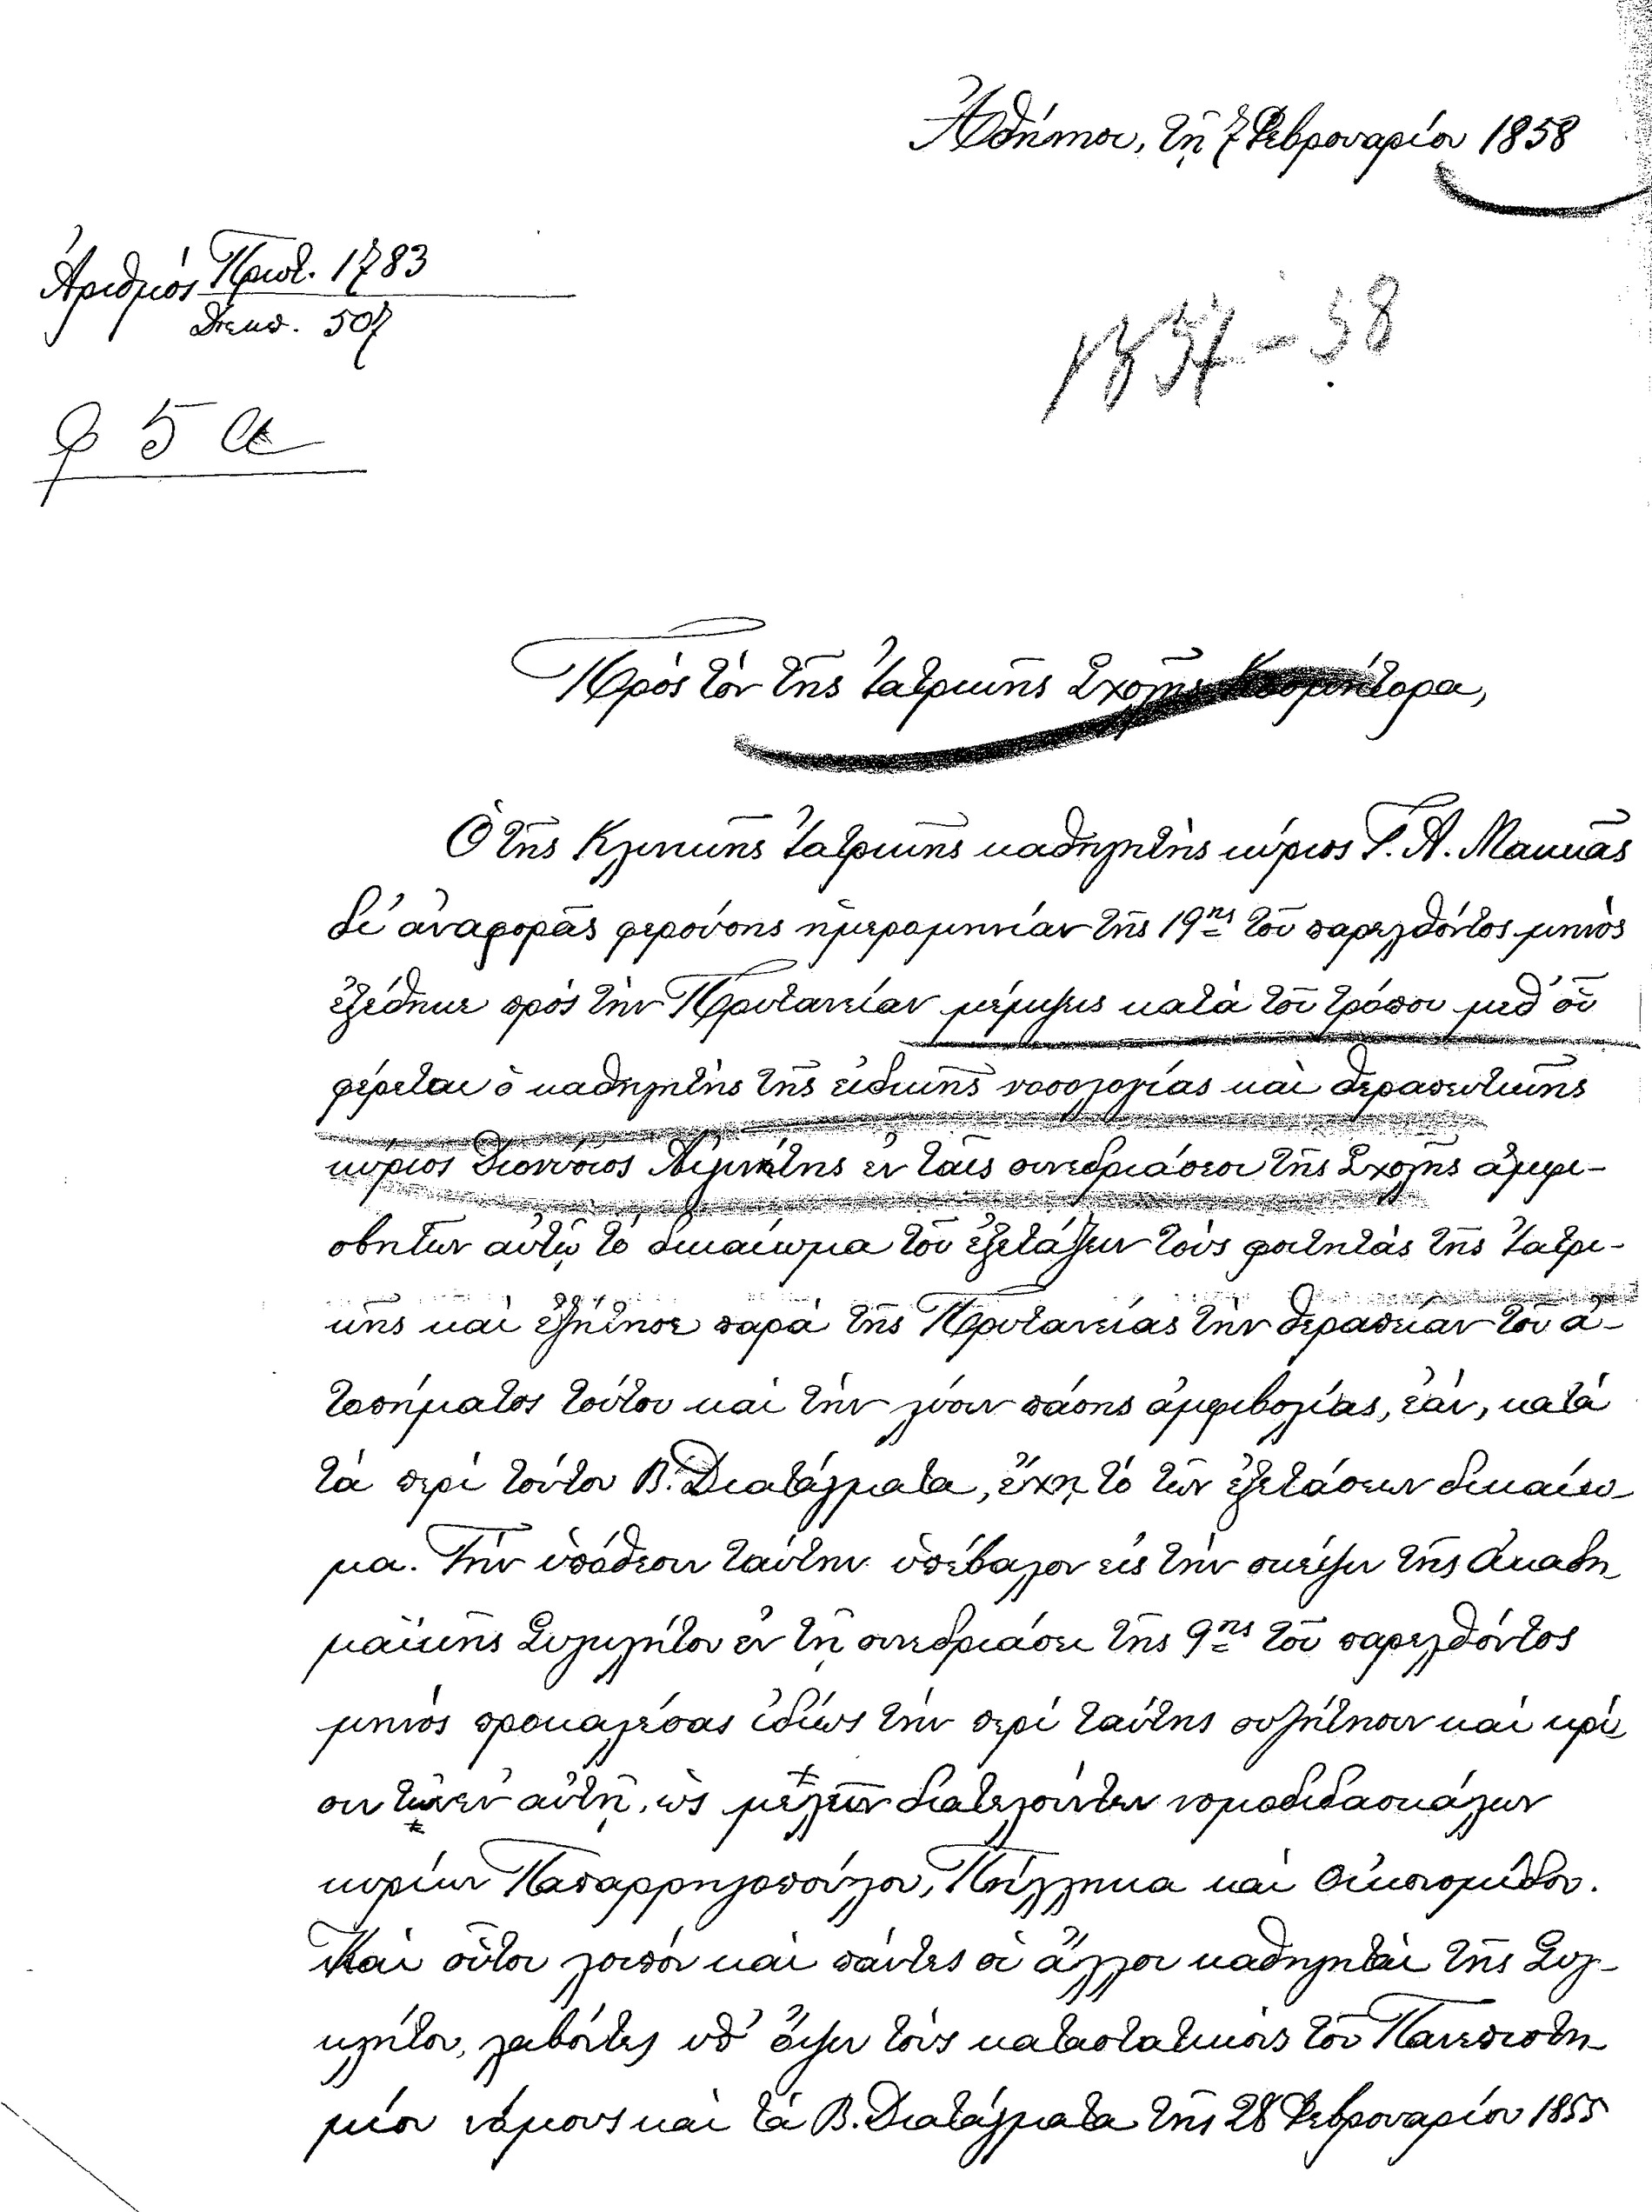 Ἀθήνησι, τῇ 7 Φεβρουαρίου 1858
Ἀριθμὸς Πρωτ. 1783
Διεκπ. 507
φ 5 α
1857-58
Πρὸς τὸν τῆς Ἰατρικῆς Σχολῆς Κοσμήτορα,
Ὁ τῆς Κλινικῆς Ἰατρικῆς καθηγητὴς κύριος Γ. Α. Μακκᾶς
δι' ἀναφορᾶς φερούσης ἡμερομηνίαν τῆς 19ης τοῦ παρελθόντος μηνὸς
ἐξέθηκε πρὸς τὴν Πρυτανείαν μέμψεις κατὰ τοῦ τρόπου μεθ' οὗ
φέρεται ὁ καθηγητὴς τῆς εἰδικῆς νοσολογίας καὶ θεραπευτικῆς
κύριος Διονύσιος Αἰγινήτης ἐν ταῖς συνεδριάσεσι τῆς Σχολῆς ἀμφι-
σβητῶν αὐτῷ τὸ δικαίωμα τοῦ ἐξετάζειν τοὺς φοιτητὰς τῆς Ἰατρι-
κῆς καὶ ἐξῄτησε παρὰ τῆς Πρυτανείας τὴν θεραπείαν τοῦ ἀ-
τοπήματος τούτου καὶ τὴν λύσιν πάσης ἀμφιβολίας, ἐὰν, κατὰ
τὰ περὶ τούτου Β. Διατάγματα, ἔχῃ τὸ τῶν ἐξετάσεων δικαίω-
μα. Τὴν ὑπόθεσιν ταύτην ὑπέβαλον εἰς τὴν σκέψιν τῆς Ἀκαδη-
μαϊκῆς Συγκλήτου ἐν τῇ συνεδριάσει τῆς 9ης τοῦ παρελθόντος
μηνὸς προκαλέσας ἰδίως τὴν περὶ ταύτης συζήτησιν καὶ κρί-
σιν τῶν ἐν αὐτῇ, ὡς μελῶν διατελούντων νομοδιδασκάλων
κυρίων Παπαρρηγοπούλου, Πήλληκα καὶ Οἰκονομίδου.
Καὶ οὗτοι λοιπὸν καὶ πάντες οἱ ἄλλοι καθηγηταὶ τῆς Συγ-
κλήτου, λαβόντες ὑπ' ὄψιν τοὺς καταστατικοὺς τοῦ Πανεπιστη-
μίου νόμους καὶ τὰ Β. Διατάγματα τῆς 28 Φεβρουαρίου 1855